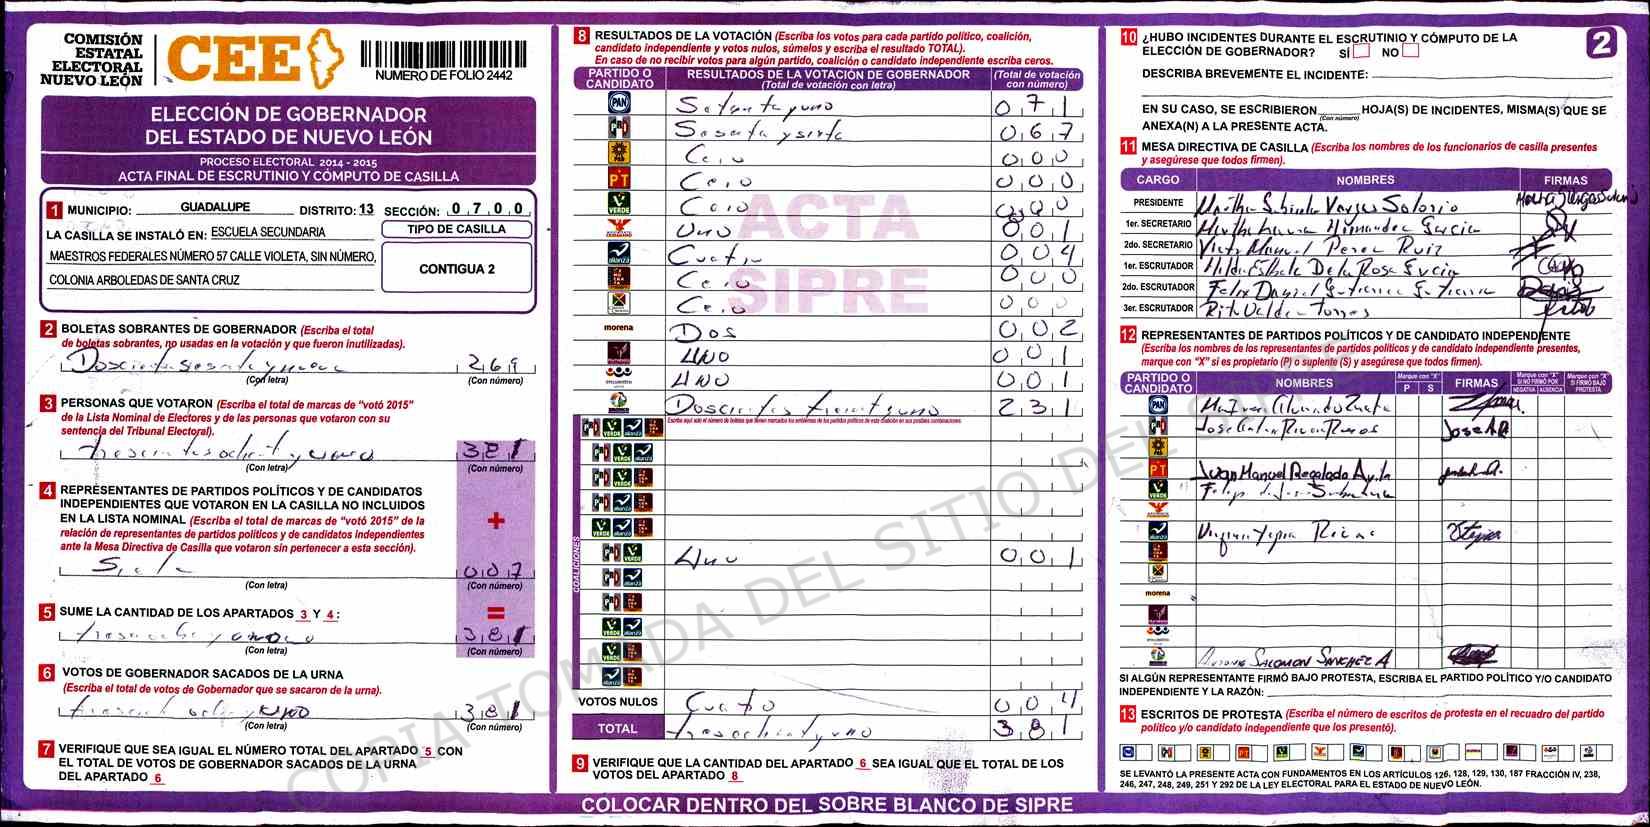 COMISIÓN
ESTATAL
ELECTORAL
NUEVO LEÓN
CEE
NUMERO DE FOLIO 2442
ELECCIÓN DE GOBERNADOR
DEL ESTADO DE NUEVO LEÓN
PROCESO ELECTORAL 2014 - 2015
ACTA FINAL DE ESCRUTINIO Y CÓMPUTO DE CASILLA
1 MUNICIPIO: GUADALUPE DISTRITO: 13 SECCIÓN: 0 7 0 0
LA CASILLA SE INSTALÓ EN: ESCUELA SECUNDARIA
MAESTROS FEDERALES NÚMERO 57 CALLE VIOLETA, SIN NÚMERO,
COLONIA ARBOLEDAS DE SANTA CRUZ
TIPO DE CASILLA
CONTIGUA 2
2 BOLETAS SOBRANTES DE GOBERNADOR (Escriba el total
de boletas sobrantes, no usadas en la votación y que fueron inutilizadas).
269
(Con letra) (Con número)
3 PERSONAS QUE VOTARON (Escriba el total de marcas de “votó 2015”
de la Lista Nominal de Electores y de las personas que votaron con su
sentencia del Tribunal Electoral).
381
(Con letra) (Con número)
4 REPRESENTANTES DE PARTIDOS POLÍTICOS Y DE CANDIDATOS
INDEPENDIENTES QUE VOTARON EN LA CASILLA NO INCLUIDOS
EN LA LISTA NOMINAL (Escriba el total de marcas de “votó 2015” de la
relación de representantes de partidos políticos y de candidatos independientes
ante la Mesa Directiva de Casilla que votaron sin pertenecer a esta sección).
+
007
(Con letra) (Con número)
5 SUME LA CANTIDAD DE LOS APARTADOS 3 Y 4:
=
381
(Con letra) (Con número)
6 VOTOS DE GOBERNADOR SACADOS DE LA URNA
(Escriba el total de votos de Gobernador que se sacaron de la urna).
381
(Con letra) (Con número)
7 VERIFIQUE QUE SEA IGUAL EL NÚMERO TOTAL DEL APARTADO 5 CON
EL TOTAL DE VOTOS DE GOBERNADOR SACADOS DE LA URNA
DEL APARTADO 6
8 RESULTADOS DE LA VOTACIÓN (Escriba los votos para cada partido político, coalición,
candidato independiente y votos nulos, súmelos y escriba el resultado TOTAL).
En caso de no recibir votos para algún partido, coalición o candidato independiente escriba ceros.
PARTIDO O CANDIDATO
RESULTADOS DE LA VOTACIÓN DE GOBERNADOR
(Total de votación con letra)
(Total de votación con número)
PAN Setenta y uno 071
PRD Sesenta y siete 067
Cero 000
PT Cero 000
VERDE Cero 000
Uno 001
alianza Cuatro 004
Cero 000
Cero 000
morena Dos 002
UNO 001
UNO 001
Doscientos treinta y uno 231
COALICIONES
Uno 001
VOTOS NULOS Cuatro 004
TOTAL 381
ACTA
SIPRE
9 VERIFIQUE QUE LA CANTIDAD DEL APARTADO 6 SEA IGUAL QUE EL TOTAL DE LOS
VOTOS DEL APARTADO 8
10 ¿HUBO INCIDENTES DURANTE EL ESCRUTINIO Y CÓMPUTO DE LA
ELECCIÓN DE GOBERNADOR? SÍ NO
2
DESCRIBA BREVEMENTE EL INCIDENTE:
EN SU CASO, SE ESCRIBIERON HOJA(S) DE INCIDENTES, MISMA(S) QUE SE
(Con número)
ANEXA(N) A LA PRESENTE ACTA.
11 MESA DIRECTIVA DE CASILLA (Escriba los nombres de los funcionarios de casilla presentes
y asegúrese que todos firmen).
CARGO NOMBRES FIRMAS
PRESIDENTE Vargas
1er. SECRETARIO Martha Laura Hernandez Garcia
2do. SECRETARIO Victor Manuel Perez Ruiz
1er. ESCRUTADOR Hilda Estela De la Rosa
2do. ESCRUTADOR Felix Daniel Gutierrez Gutierrez
3er. ESCRUTADOR Torres
12 REPRESENTANTES DE PARTIDOS POLÍTICOS Y DE CANDIDATO INDEPENDIENTE
(Escriba los nombres de los representantes de partidos políticos y de candidato independiente presentes,
marque con “X” si es propietario (P) o suplente (S) y asegúrese que todos firmen).
PARTIDO O CANDIDATO
NOMBRES
Marque con "X"
P S
FIRMAS
Marque con "X" SI NO FIRMÓ POR NEGATIVA AUSENCIA
Marque con "X" SI FIRMÓ BAJO PROTESTA
PAN
Jose
PT Juan Manuel Regalado
VERDE
morena
SALOMON SANCHEZ A
SI ALGÚN REPRESENTANTE FIRMÓ BAJO PROTESTA, ESCRIBA EL PARTIDO POLÍTICO Y/O CANDIDATO
INDEPENDIENTE Y LA RAZÓN:
13 ESCRITOS DE PROTESTA (Escriba el número de escritos de protesta en el recuadro del partido
político y/o candidato independiente que los presentó).
SE LEVANTÓ LA PRESENTE ACTA CON FUNDAMENTOS EN LOS ARTÍCULOS 126, 128, 129, 130, 187 FRACCIÓN IV, 238,
246, 247, 248, 249, 251 Y 292 DE LA LEY ELECTORAL PARA EL ESTADO DE NUEVO LEÓN.
COLOCAR DENTRO DEL SOBRE BLANCO DE SIPRE
COPIA TOMADA DEL SITIO DEL SIPRE